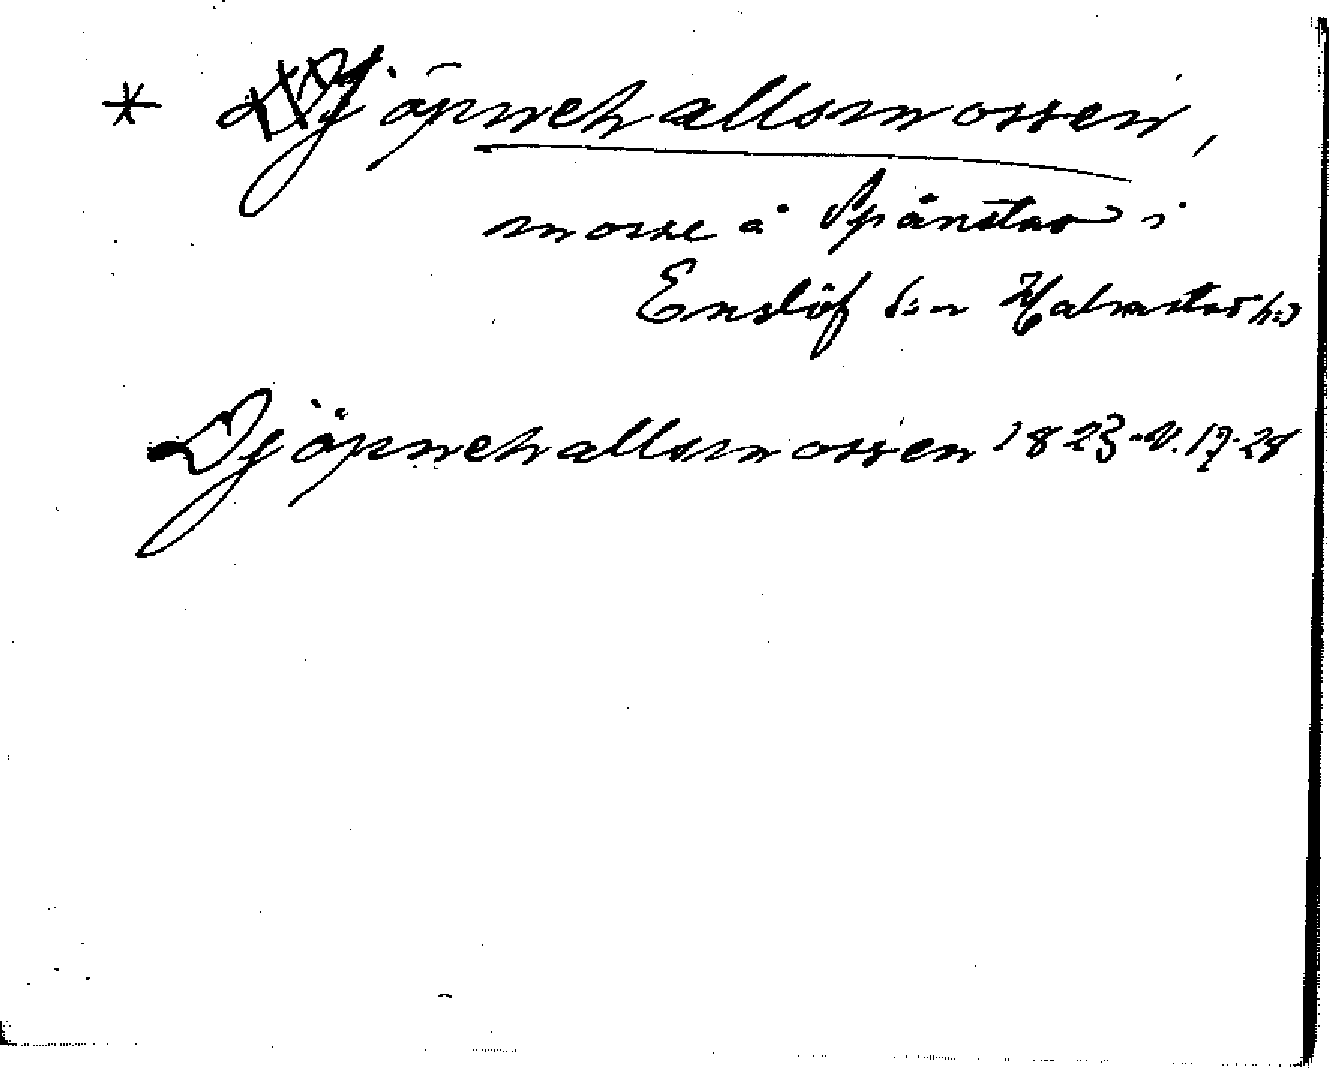 * Djöpnehallsmossen,
mosse å Spånstad i
Enslöf s:n Halmstad h:d
Djöpnehallsmossen 1823-V.17-28